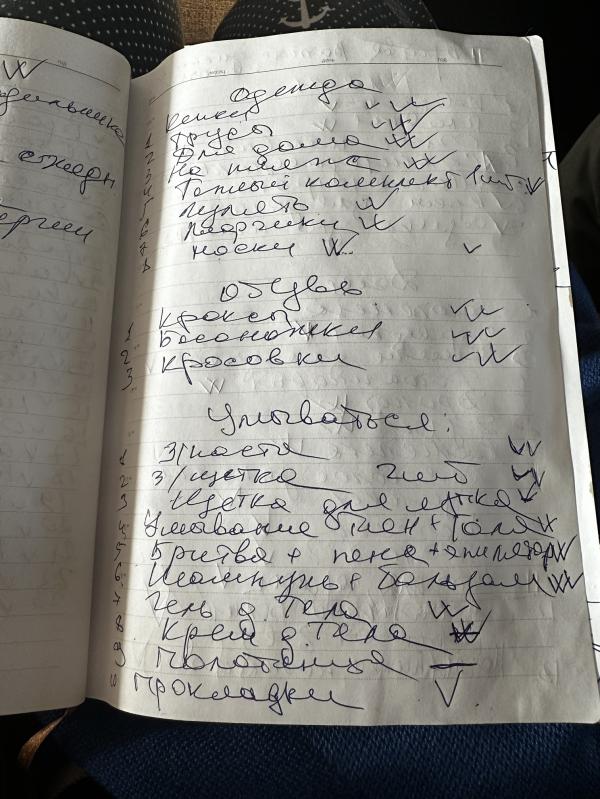 Одежда
1 Кепки
2 Трусы
3 Для дома
4 На пляж
5 Теплый комплект 1шт.
6 гулять
7 шорчики
8 носки
Обувь
1 Кроксы
2 Босоножки
3 кросовки
Умываться:
1 З/паста
2 З/щетка 2шт
3 Щетка для
4 Умывание мен + Толя
5 Бритва + пена + эпилятор
6 Шампунь + бальзам
7 Гель д. Тела
8 Крем д Тела
9 Полотенца
Прокладки